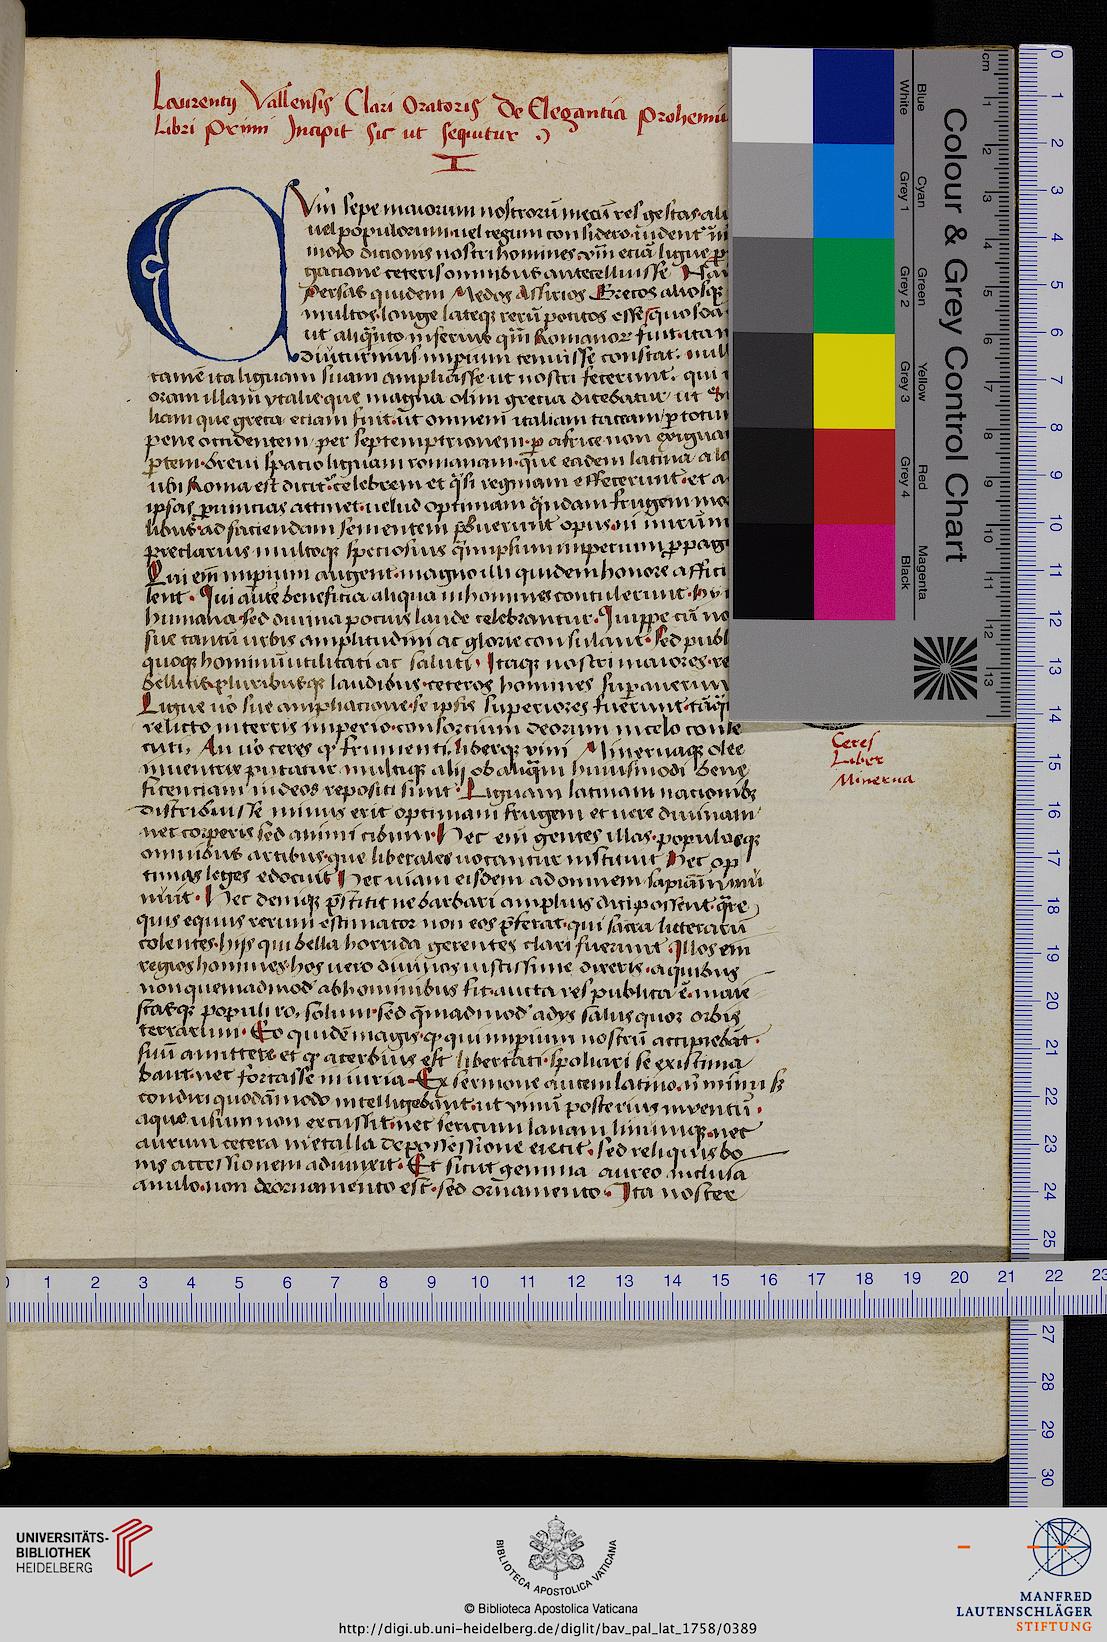 Laurentij Vallensis Clari Oratoris De Elegantia Prohemiu
Libri Primi Incipit sic ut sequitur
I
QVm sepe maiorum nostrorū mecū res gestas ali
uel populorum uel regum considero uident᷑
modo dicionis nostri homines vm̄ eciā ligue ꝓ
gacione ceteris omnibus antecelluisse Nam
Persas quidem Medos Assirios Grecos aliosqꝫ
multos longe lateqꝫ rerū potitos esse quosdā
ut aliq̄nto inferius qm̄ Romanor fuit ita
diuturnius imꝑium tenuisse constat null
tamē ita liguam suam ampliasse ut nostri fecerunt qui
oram illam ytalie que magna olim grecia dicebatur ut
liam que greca eciam fuit ut omnem italiam taceam ꝑ totu
pene occidentem per septemptrionem ꝑ africe non exiguam
ꝑtem breui spacio liguam romanam que eadem latina a la
ubi Roma est dicit᷑ celebrem et q̄si reginam effecerunt et
ipsas ꝓuincias attinet uelud optimam qundam frugem mor
libus ad faciendam sementem p̄buerunt opus ni mirūm
preclarius multoqꝫ speciosius q̄ꝫ ipsum imperium ꝓpag
Qui em̄ imꝑium augent magno illi quidem honore affici
lent Qui aute beneficia aliqua in homines contulerunt
humana sed diuina pocius laude celebrantur Quippe cū no
sue tantū urbis amplitudini ac glorie consulant Sed publ
quoqꝫ hominū utilitati ac saluti Itaqꝫ nostri maiores re
bellicis pluribusqꝫ laudibus ceteros homines suꝑauerun
Ligue uo sue ampliacione se ipsis superiores fuerunt tāq̄
relicto in terris imperio consorcium deorum in celo conse
cuti An uo ceres ꝙ frumenti liberqꝫ vini Mineruaqꝫ olee
inuentrix putatur multiqꝫ alij ob aliq̄m huiusmodi bene
ficenciam in deos repositi sunt Liguam latinam nacionibꝫ
distribuisse minus erit optimam frugem et uere diuinam
nec corꝑis sed animi cibum Hec em̄ gentes illas populosqꝫ
omnibus artibus que liberales uocantur instituit Hec op
timas leges edocuit Hec uiam eisdem ad omnem sapiām mu
niuit Hec deniqꝫ p̄stitit ne barbari amplius dici possent q̄re
quis equus rerum estimator non eos p̄ferat qui sacra litterarū
colentes hijs qui bella horrida gerentes clari fuerunt Illos em̄
regios homines hos uero diuinos iustissime dixeris a quibus
non quemadmod ab hominibus fit aucta res publica ē maie
stasqꝫ populi ro. solum sed q̄madmod a dijs salus quoqꝫ orbis
terrarum Eo quidē magis ꝙ qui imꝑium nostrū accipiebāt
suū amittere et ꝙ acerbius est libertati spoliari se existima
bant nec fortasse iniuria Ex sermone autem latino n̄ minui sꝫ
condiri quodāmodo intelligebant ut vinū posterius inventū
aque usum non excussit nec sericum lanam linumqꝫ nec
aurum cetera metalla de possessione eiecit sed reliquis bo
nis accessionem adiunxit Et sicut gemma aureo inclusa
anulo non deornamento est sed ornamento Ita noster
Ceres
Liber
Minerua
Colour & Grey Control Chart
Blue
Cyan
Green
Yellow
Red
Magenta
White
Grey 1
Grey 2
Grey 3
Grey 4
Black
cm 1 2 3 4 5 6 7 8 9 10 11 12 13
0 1 2 3 4 5 6 7 8 9 10 11 12 13 14 15 16 17 18 19 20 21 22 23 24 25 27 28 29 30
0 1 2 3 4 5 6 7 8 9 10 11 12 13 14 15 16 17 18 19 20 21 22 23
UNIVERSITÄTS-
BIBLIOTHEK
HEIDELBERG
BIBLIOTECA APOSTOLICA VATICANA
© Biblioteca Apostolica Vaticana
http://digi.ub.uni-heidelberg.de/diglit/bav_pal_lat_1758/0389
MANFRED
LAUTENSCHLÄGER
STIFTUNG